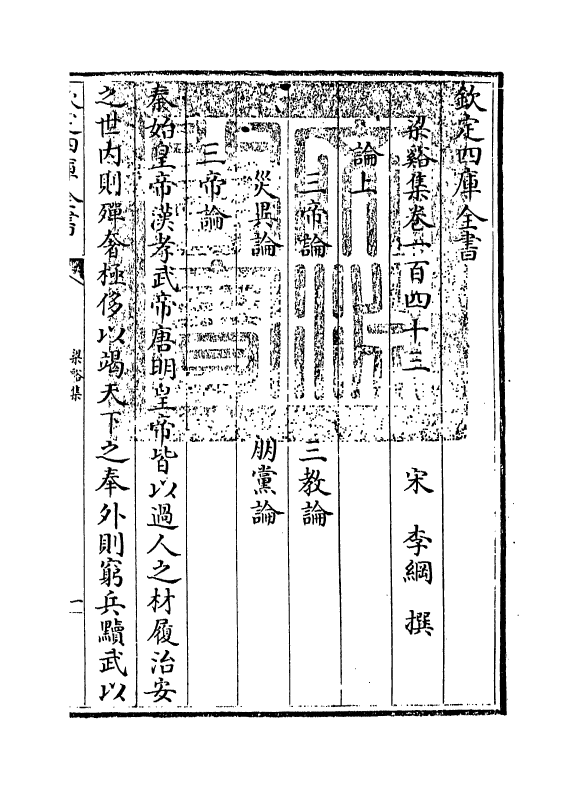 欽定四庫全書
梁谿集卷一百四十三
宋 李綱 撰
論上
三帝論 三教論
災異論 朋黨論
三帝論
秦始皇帝漢孝武帝唐明皇帝皆以過人之材履治安
之世内則殫奢極侈以竭天下之奉外則窮兵黷武以
欽定四庫全書
梁谿集
一